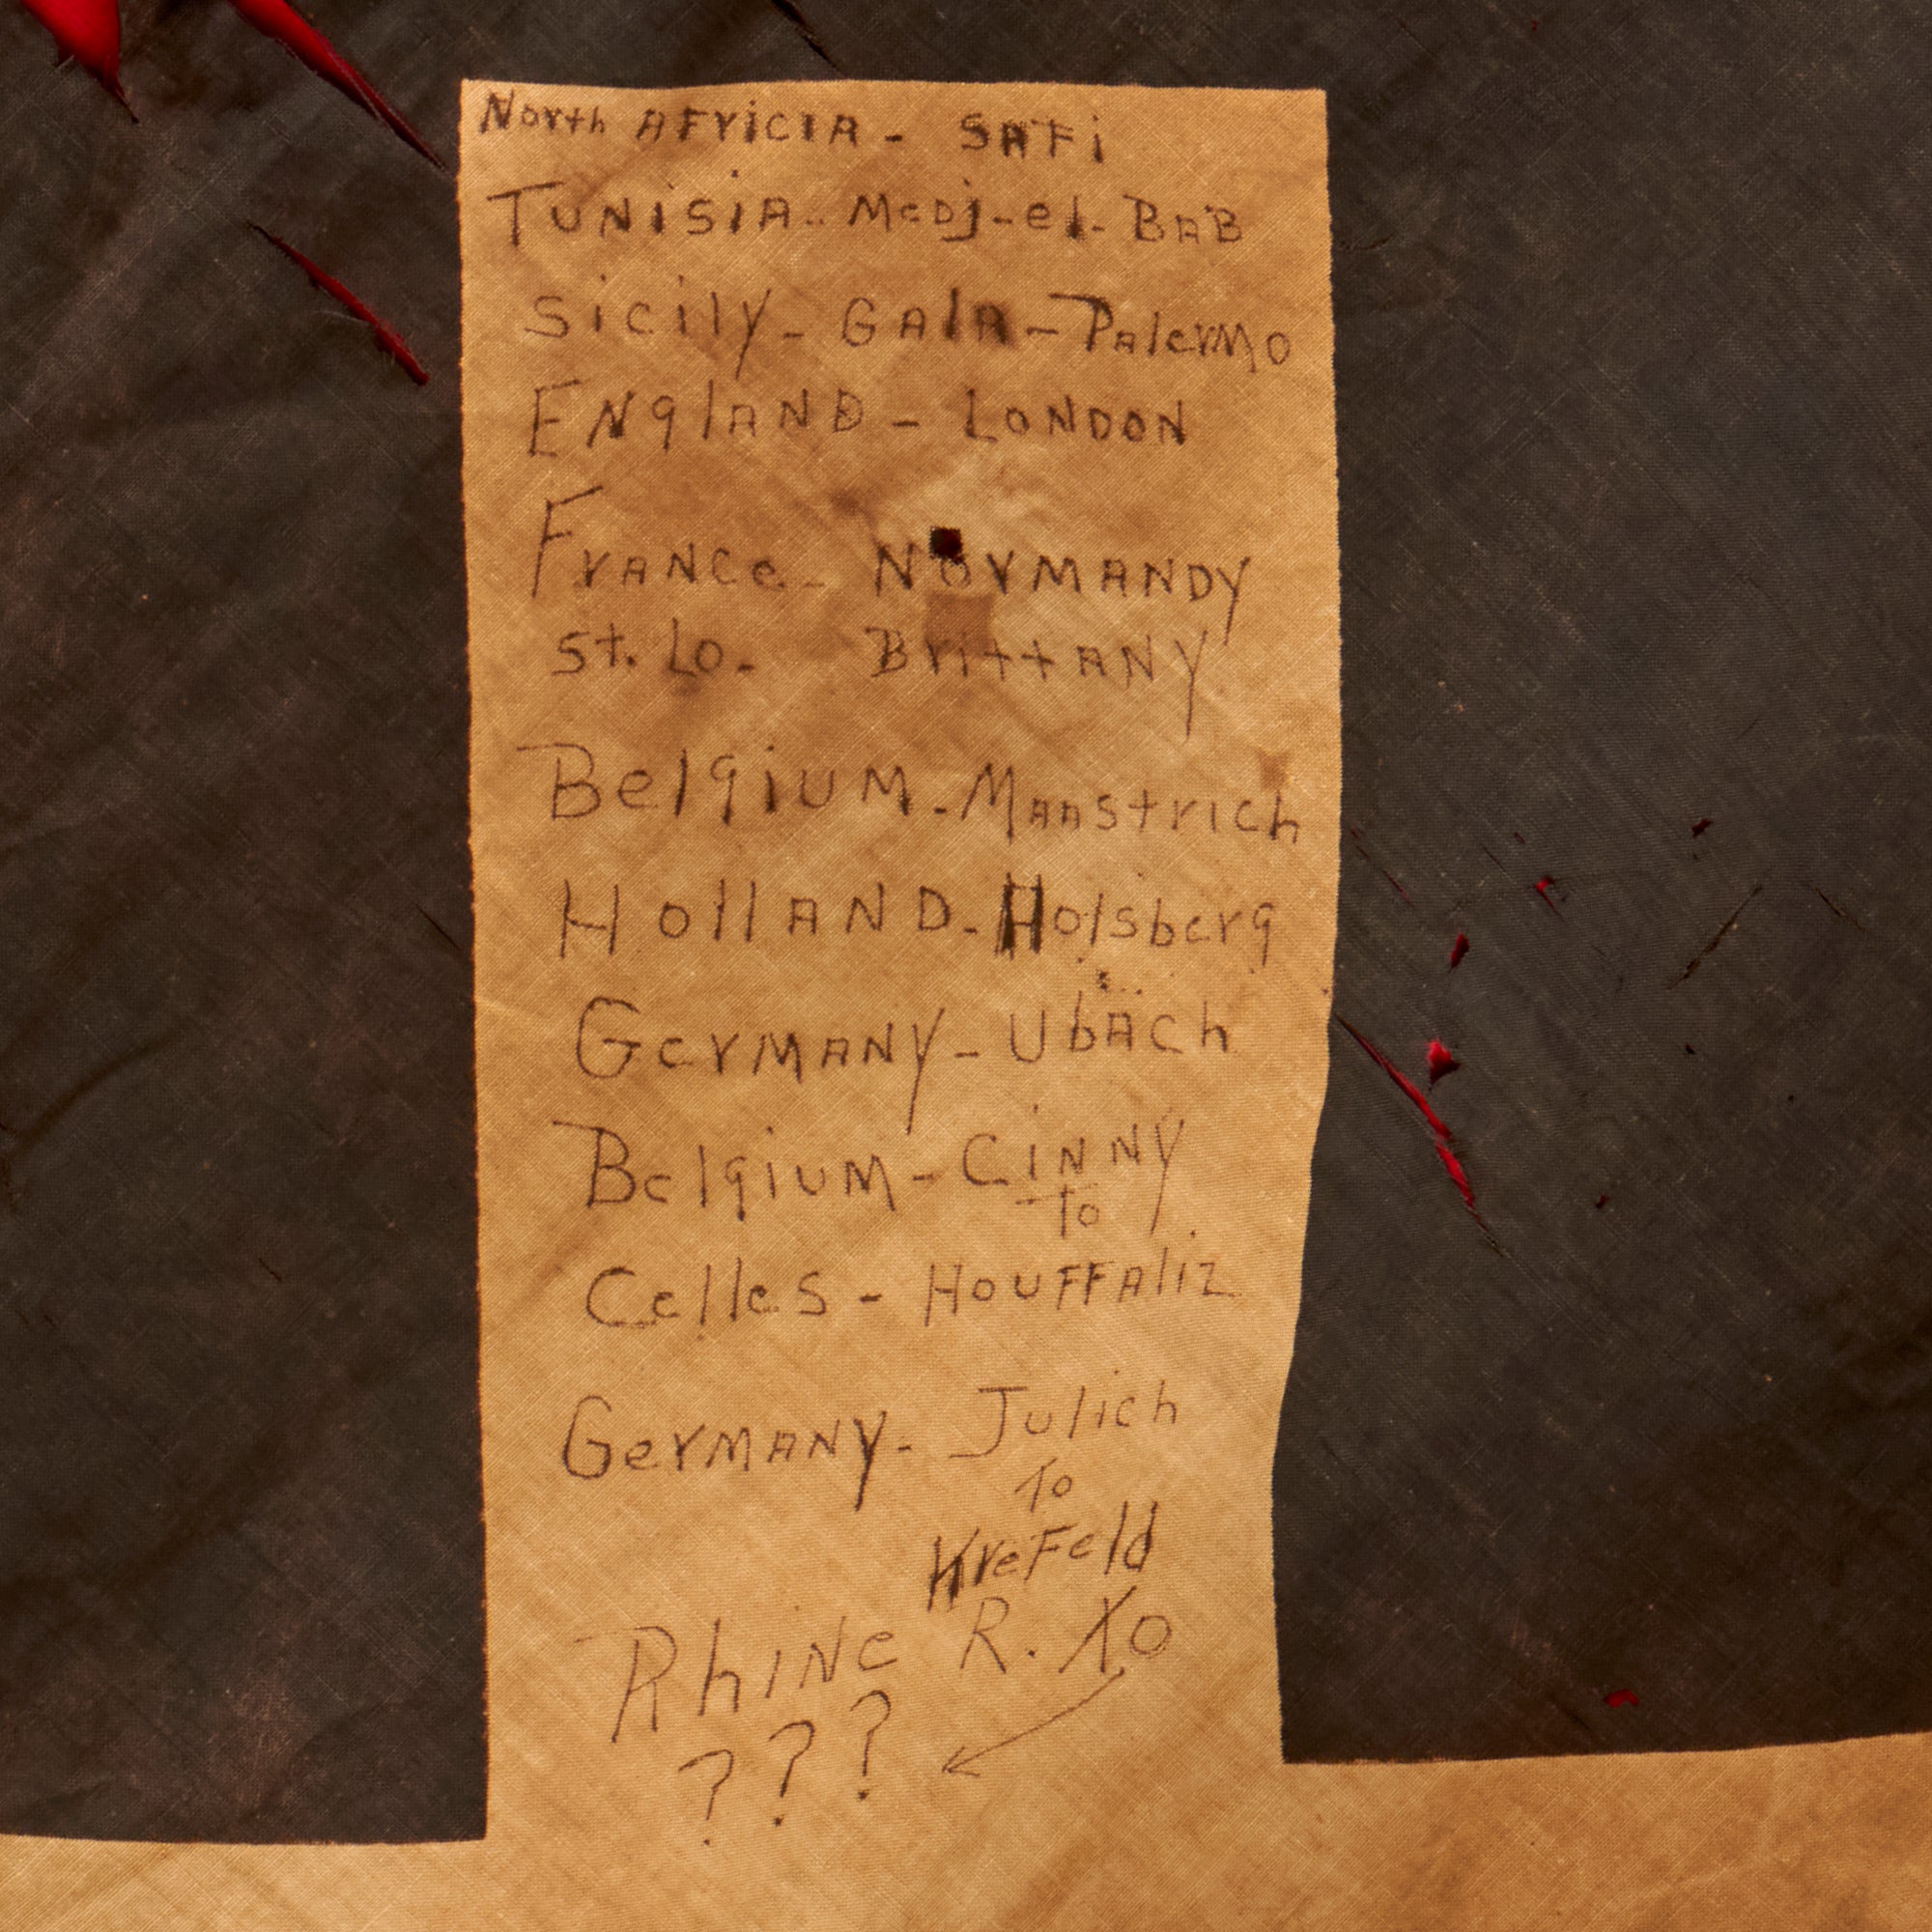 North AFricIA - SAFi
TUNiSiA - Medj-el-BAB
Sicily - GAlA - PAlerMo
ENglAND - LONDON
FrANCe - NorMANDY
St. Lo - BrittANY
BelgiUM - MAAstrich
HollAND - Holsberg
GerMANY - UbACh
BelgiUM - CiNNY
To
Celles - HOUFFAliz
GerMANY - Julich
To
KreFeld
RhiNe R. XO
? ? ?